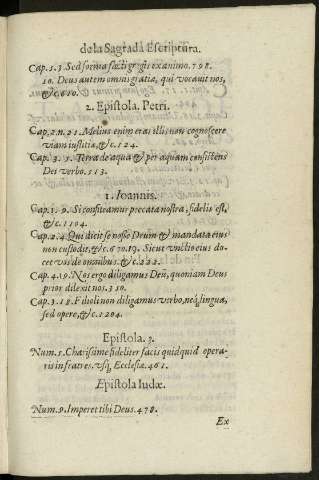 de la Sagrada Escriptura.
Cap.5.3. Sed forma facti gregis ex animo.798.
10. Deus autem omnis gratiæ, qui vocauit nos,
&c.610.
2. Epistola. Petri.
Cap.2.n.21. Melius enim erat illis non cognoscere
viam iustitiæ,&c.124.
Cap. 3. 5. Terra de aqua & per aquam consistens
Dei verbo.513.
1. Ioannis.
Cap.1.9. Si confiteamur peccata nostra, fidelis est,
&c.1104.
Cap.2.4. Qui dicit se nosse Deum & mandata eius
non custodit,&c.670.19. Sicut vnctio eius do
cet vos de omnibus.&c.222.
Cap.4.19. Nos ergo diligamus Deũ, quoniam Deus
prior dilexit nos.310.
Cap.3.18. Filioli non diligamus verbo, neq; lingua,
sed opere,&c.1204.
Epistola.3.
Num.5. Charissime fideliter facis quidquid opera-
ris in fratres. vsq; Ecclesiæ.461.
Epistola Iudæ.
Num.9. Imperet tibi Deus.478.
Ex